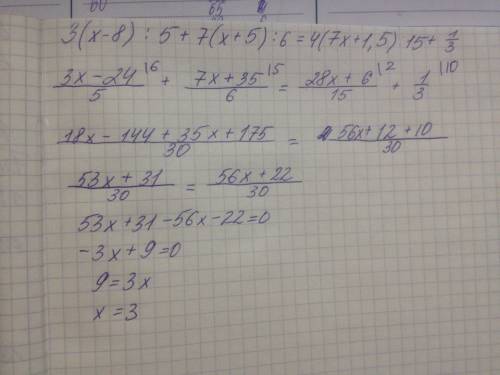 60 65 4
3(x-8) : 5 + 7(x+5) : 6 = 4(7x+1,5) 15 + 1/3
(3x-24)/5 \6 + (7x+35)/6 \5 = (28x+6)/15 \2 + 1/3 \10
(18x - 144 + 35x + 175)/30 = (56x+12+10)/30
(53x+31)/30 = (56x+22)/30
53x+31-56x-22=0
-3x+9=0
9=3x
x=3